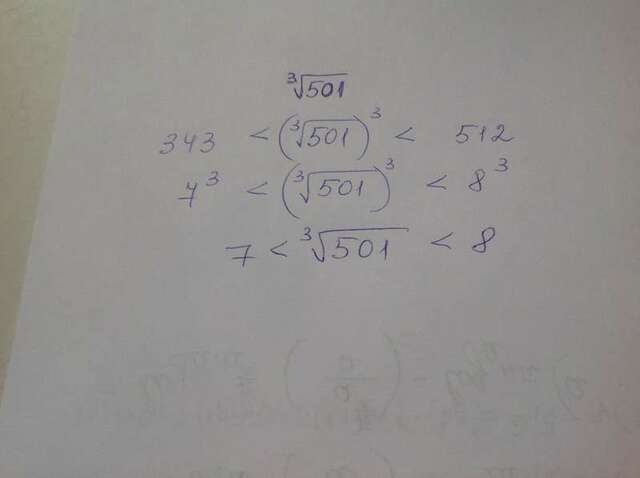 ∛501
343 < (∛501)³ < 512
7³ < (∛501)³ < 8³
7 < ∛501 < 8